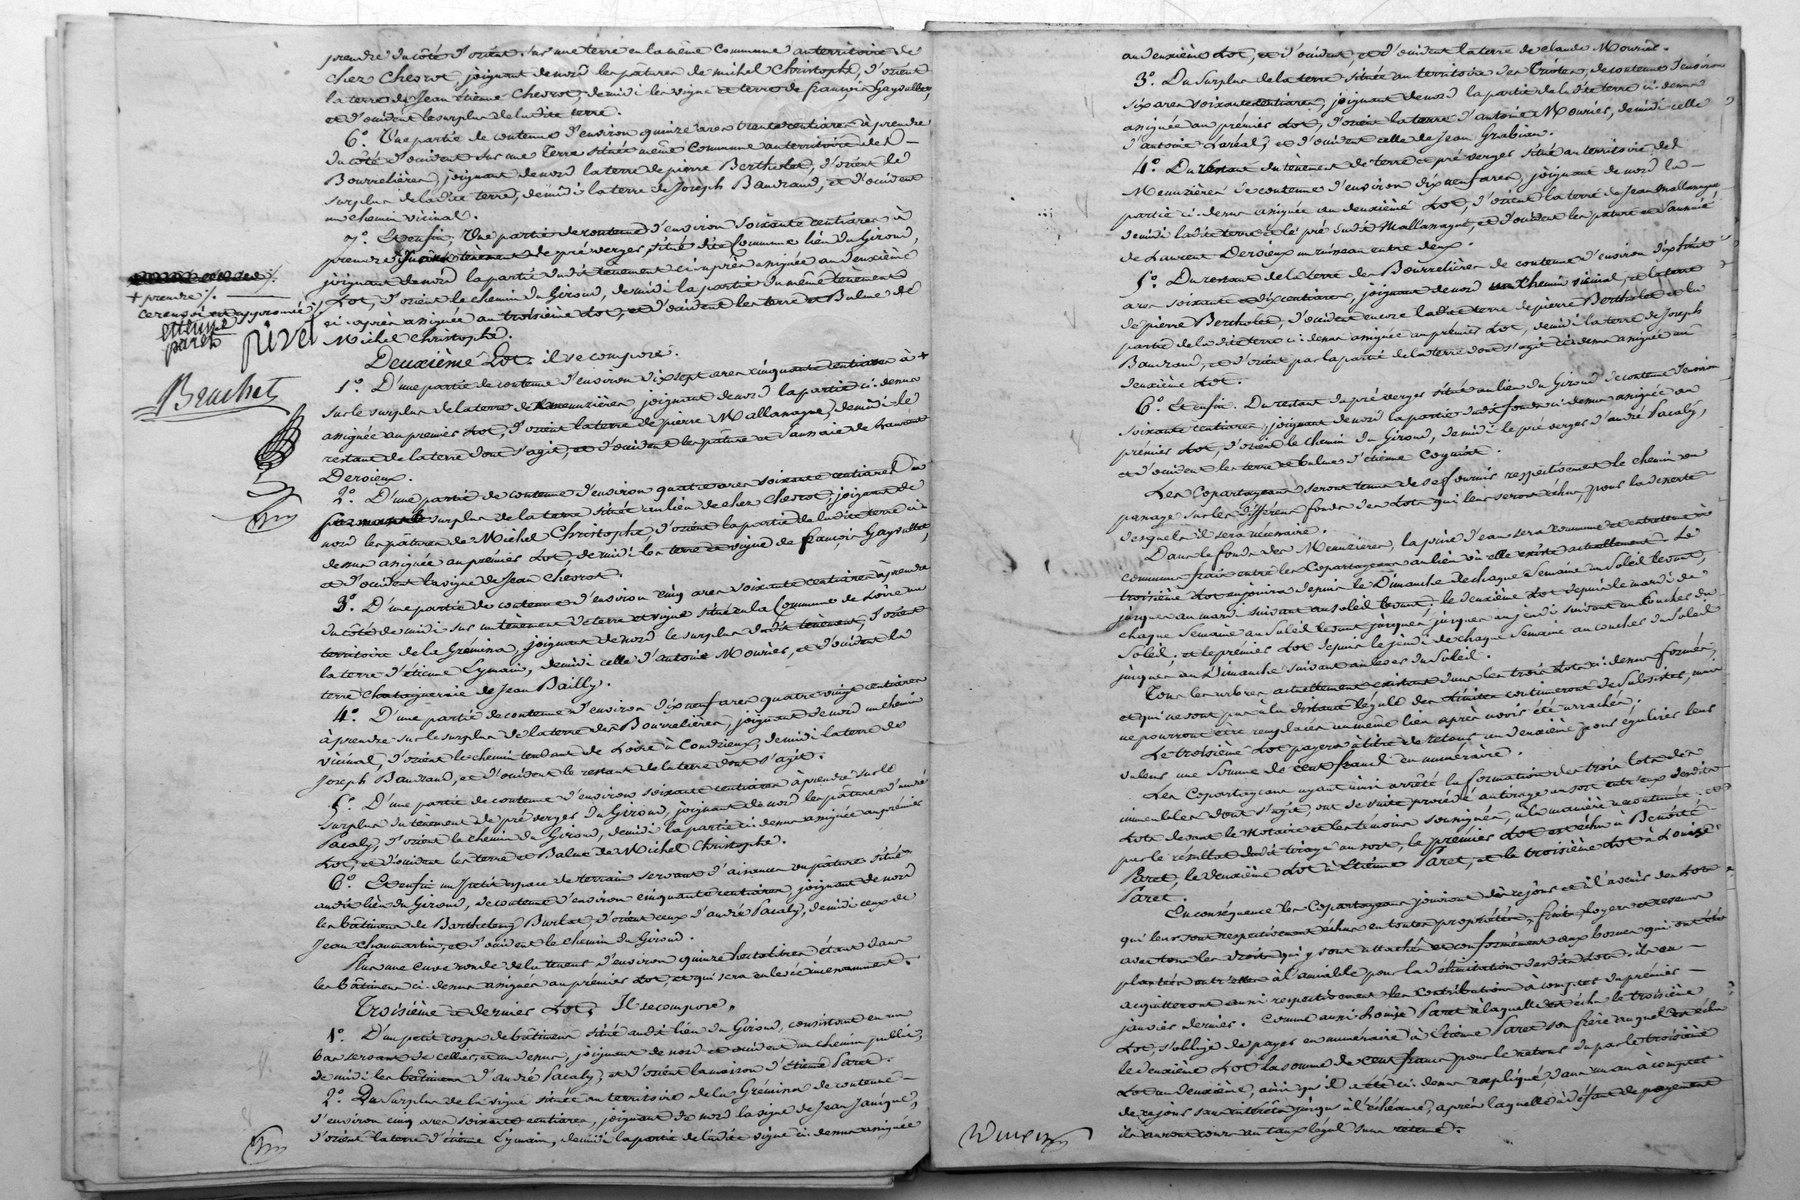 prendre du côté d'orient sur une terre en la même commune au territoire de
chez Chevrot, joignant de nord les pâtures de michel Christophe, d'orient
la terre de Jean Etienne Chevrot, de midi les vigne et terre de françois Gayvallet,
et d'occident le surplus de la dite terre.
6.° Une partie de contenue d'environ quinze ares trente centiares à prendre
du côté d'occident sur une Terre située même Commune au territoire des
Bourrelières, joignant de nord la terre de pierre Bertholet, d'orient le
surplus de la dite terre, de midi la terre de Joseph Baudrand, et d'occident
un chemin vicinal.
7.° Et enfin, Une partie de contenue d'environ Soixante centiares à
prendre sur un tènement de pré verger situé dite Commune lieu du Giroud,
joignant de nord la partie dudit tènement ci après assignée au deuxième
Lot, d'orient le chemin du Giroud, de midi la partie du même tènement
ci après assignée au troisième Lot, et d'occident les terre et Balme de
Michel Christophe.
+ prendre /.
ce renvoi est approuvé
etienne
paret
pivet
Bruchet
Deuxième Lot. il se compose.
1.° D'une partie de contenue d'environ dix sept ares cinquante centiares à +
sur le surplus de la terre de Meuzières joignant de nord la partie ci-dessus
assignée au premier Lot, d'orient la terre de pierre Mallanagne, de midi le
restant de la terre dont s'agit, et d'occident les pâture et Saunaie de Laurent
Deroieux.
2.° D'une partie de contenue d'environ quatre ares soixante centiares
surplus de la terre située au lieu de chez Chevrot, joignant de
nord les pâtures de Michel Christophe, d'orient la partie de la dite terre ci-
dessus assignée au premier Lot, de midi les terre et vigne de françois Gayvallet,
et d'occident la vigne de Jean Chevrot.
3.° D'une partie de contenue d'environ cinq ares soixante centiares à prendre
du côté de midi sur un tènement de terre et vigne situé en la Commune de Loire au
territoire de la Grémina, joignant de nord le surplus dudit tènement, d'orient
la terre d'étienne Eymain, de midi celle d'antoine Mouries, et d'occident la
terre Chataigneraie de Jean Bailly.
4.° D'une partie de contenue d'environ dix neuf ares quatre vingt centiares
à prendre sur le surplus de la terre des Bourrelières, joignant de nord un chemin
vicinal, d'orient le chemin tendant de Loire à Condrieux, de midi la terre de
Joseph Baudrand, et d'occident le restant de la terre dont s'agit.
5.° D'une partie de contenue d'environ soixante centiares à prendre sur le
surplus du tènement de pré verger du Giroud, joignant de nord les pâtures d'andré
Pacaly, d'orient le chemin du Giroud, de midi la partie ci-dessus assignée au premier
Lot, et d'occident les terre et Balme de Michel Christophe.
6.° Et enfin un petit espace de terrain servant d'aisances ou pâture situé
audit lieu du Giroud, de contenue d'environ cinquante centiares, joignant de nord
les bâtimens de Barthelemy Burlat, d'orient ceux d'andré Pacaly, de midi ceux de
Jean Chaumartin, et d'occident le chemin du Giroud.
Plus une cuve ronde de la teneur d'environ quinze hectolitres étant dans
les bâtimens ci-dessus assignés au premier Lot, et qui sera enlevée incessamment.
Troisième et dernier Lot. Il se compose,
1.° D'un petit corps de bâtiment situé audit lieu du Giroud, consistant en un
bas servant de cellier, et un dessus, joignant de nord et occident un chemin public,
de midi les bâtimens d'André Pacaly, et d'orient la maison d'Etienne Paret.
2.° Du Surplus de la vigne située au territoire de la Grémina de contenue
d'environ cinq ares soixante centiares, joignant de nord la vigne de Jean Janique,
d'orient la terre d'étienne Eymain, de midi la partie de la dite vigne ci-dessus assignée
au deuxième Lot, et d'occident, et d'occident la terre de claude Mouries.
3.° Du surplus de la terre située au territoire des Triotes, de contenue d'environ
six ares soixante centiares, joignant de nord la partie de la dite terre ci-dessus
assignée au premier Lot, d'orient la terre d'antoine Mouries, de midi celle
d'antoine Laréal, et d'occident celle de Jean Grabian.
4.° Du restant du tènement de terre et pré verger situé au territoire des
Meuzières de contenue d'environ dix neuf ares, joignant de nord la
partie ci-dessus assignée au deuxième Lot, d'orient la terre de Jean Mallanagne
de midi la dite terre et le pré dudit Mallanagne, et d'occident les pature et Saunaie
de Laurent Deroieux un ruisseau entre deux.
5.° Du restant de la terre des Bourrelières de contenue d'environ dix huit
ares soixante et dix centiares, joignant de nord un chemin vicinal, et la terre
de pierre Bertholet, d'occident encore la dite terre de pierre Bertholet et la
partie de la dite terre ci-dessus assignée au premier Lot, de midi la terre de Joseph
Baudrand, et d'orient par la partie de la terre dont s'agit ci-dessus assignée au
deuxième Lot.
6.° Et enfin. Du restant du pré verger situé au lieu du Giroud de contenue d'environ
soixante centiares, joignant de nord la partie dudit fonds ci-dessus assignée au
premier Lot, d'orient le chemin du Giroud, de midi le pré verger d'andré Pacaly,
et d'occident les terre et balme d'étienne Cognat.
Les Copartageans seront tenus de se fournir respectivement le chemin ou
passage sur les différens fonds des Lots qui leur seront échus, pour la desserte
desquels il sera nécessaire.
Dans le fonds des Meuzières, la prise d'eau sera commune et entretenue à
commun frais entre les Copartageans au lieu où elle existe actuellement. Le
troisième Lot en jouira depuis le Dimanche de chaque Semaine au Soleil levant,
jusques au mardi suivant au soleil levant; le deuxième Lot depuis le mardi de
chaque Semaine au Soleil levant jusques jusques au jeudi suivant au Coucher du
Soleil, et le premier Lot depuis le jeudi de chaque Semaine au coucher du Soleil
jusques au Dimanche suivant au lever du Soleil.
Tous les arbres actuellement existant dans les trois Lots ci-dessus formés,
et qui ne sont pas à la distance légale des limites continueront de subsister, mais
ne pourront être remplacés au même lieu après avoir été arrachés.
Le troisième Lot payera à titre de retour au deuxième pour égaliser leur
valeur une somme de cent francs en numéraire.
Les Copartageans ayant ainsi arrêté la formation des trois Lots des
immeubles dont s'agit, ont de suite procédé au tirage au sort entr'eux desdits
Lots devant le Notaire et les témoins soussignés, à la manière accoutumée; et
par le résultat dudit tirage au sort, le premier Lot est échu à Benoîte
Paret, le deuxième Lot à Etienne Paret, et le troisième Lot à Louise
Paret.
En conséquence les Copartageans jouiront dès ce jour et à l'avenir des Lots
qui leur sont respectivement échus en toutes propriétés, fruits, loyers et revenus
avec tous les droits qui y sont attachés et conformément aux bornes qui ont été
plantées entr'elles à l'amiable pour la délimitation desdits Lots. ils en
acquitteront aussi respectivement les contributions à compter du premier
janvier dernier. Comme aussi Louise Paret à laquelle est échu le troisième
Lot, s'oblige de payer en numéraire à Etienne Paret son frère auquel est échu
le deuxième Lot la somme de cent francs pour le retour dû par le troisième
Lot au deuxième, ainsi qu'il a été ci-dessus expliqué, dans un an à compter
de ce jour sans intérêts jusqu'à l'échéance, après laquelle à défaut de payement
ils auront cours au taux légal sans retenue.